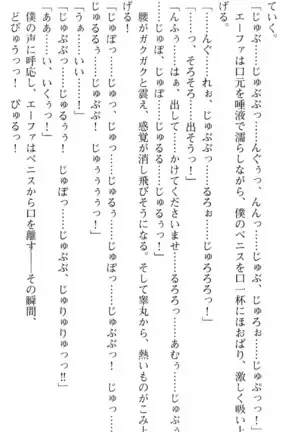 ていく。
「じゅぷ……じゅぷっ……んぐぅっ、んんっ……じゅ、じゅろぉ……じゅぷっ！」
エーファは口元を唾液で濡らしながら、僕のペニスを口一杯にほおばり、激しく吸い上
げる。
「……んぐ……れぉ、じゅぷっ……るろぉ……じゅろろろっ！」
「……っ、そろそろ……出そうっ！」
「んふぅ……はぁ、出して……かけてくださいませ……るろろっ……あむぅ……じゅぷぅ
……じゅぽっ……じゅぽ……じゅるる……じゅぷっ！」
腰がガクガクと震え、感覚が消し飛びそうになる。そして睾丸から、熱いものがこみ上
げる！
「じゅぽっ……じゅっ、じゅるぅ……じゅぽっ……じゅぽぽっ……じゅぷぷっ！　じゅっ……
じゅるるぅ……じゅぷぷ！　じゅぅぅぅぅっ！」
「うぁ……いい……！」
「じゅぷぷっ……じゅるぅぅ！　じゅぽっ……じゅぷぷ、じゅりりゅっっ!!」
「ああ……い、いくぅっ！」
僕の声に呼応し、エーファはペニスから口を離す――その瞬間、
どびゅうっっ！　びゅるっ！